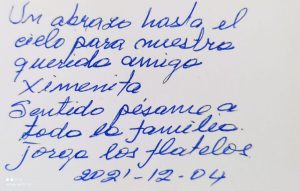 Un abrazo hasta el
cielo para nuestra
querida amiga
Ximenita
Sentido pésame a
toda la familia.
Jorge los flatelos
2021-12-04